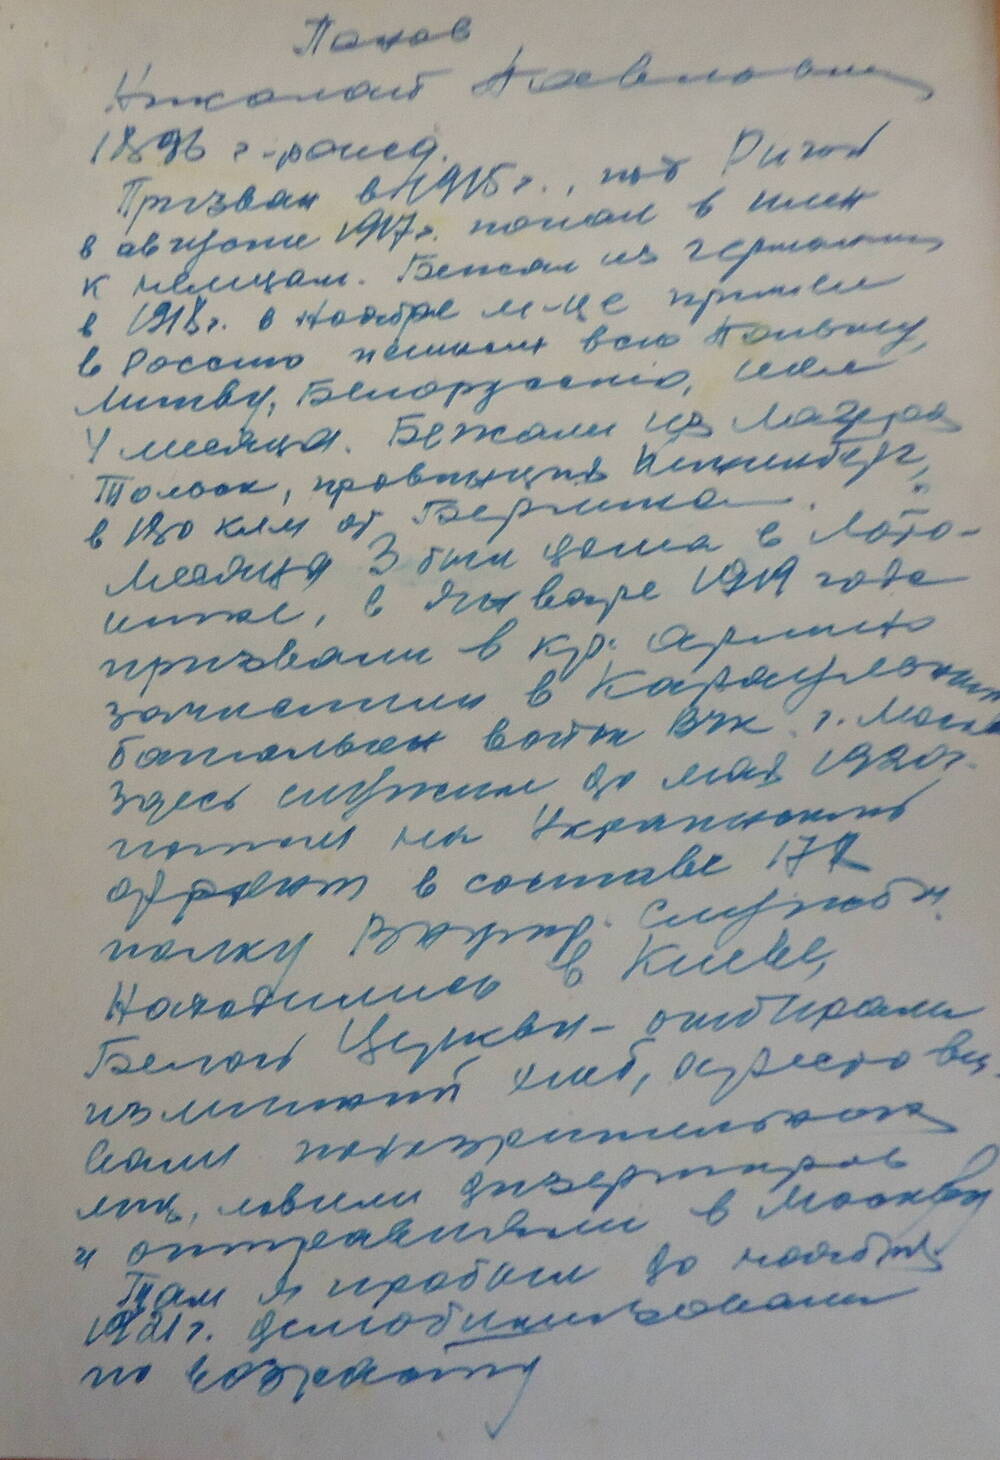 Панов
Николай Павлович
1896 г. рожд.
Призван в 1915 г., под Ригой
в августе 1917 г. попал в плен
к немцам. Бежал из Германии
в 1918 г. в ноябре м-це пришел
в Россию пешком всю Польшу,
Литву, Белоруссию, шел
4 месяца. Бежали из лагеря
провинция
в 180 клм от Берлина.
Месяца 3 был дома в
в январе 1919 года
призвали в кр. армию
зачислили в Караульный
батальон войск ВЧК г. Москва
Здесь служил до мая 1920 г.
потом на Украинский
фронт в составе
полку Внутр. Службы.
Находились в Киеве,
Белой Церкви - отбирали
излишний хлеб, арестовы-
вали подозрительных
лиц, ловили дизертиров
и отправляли в Москву
Там я пробыл до ноября
1921 г. демобилизовали
по возрасту